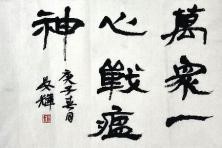 萬衆一
心戰瘟
神
庚子春月
輝